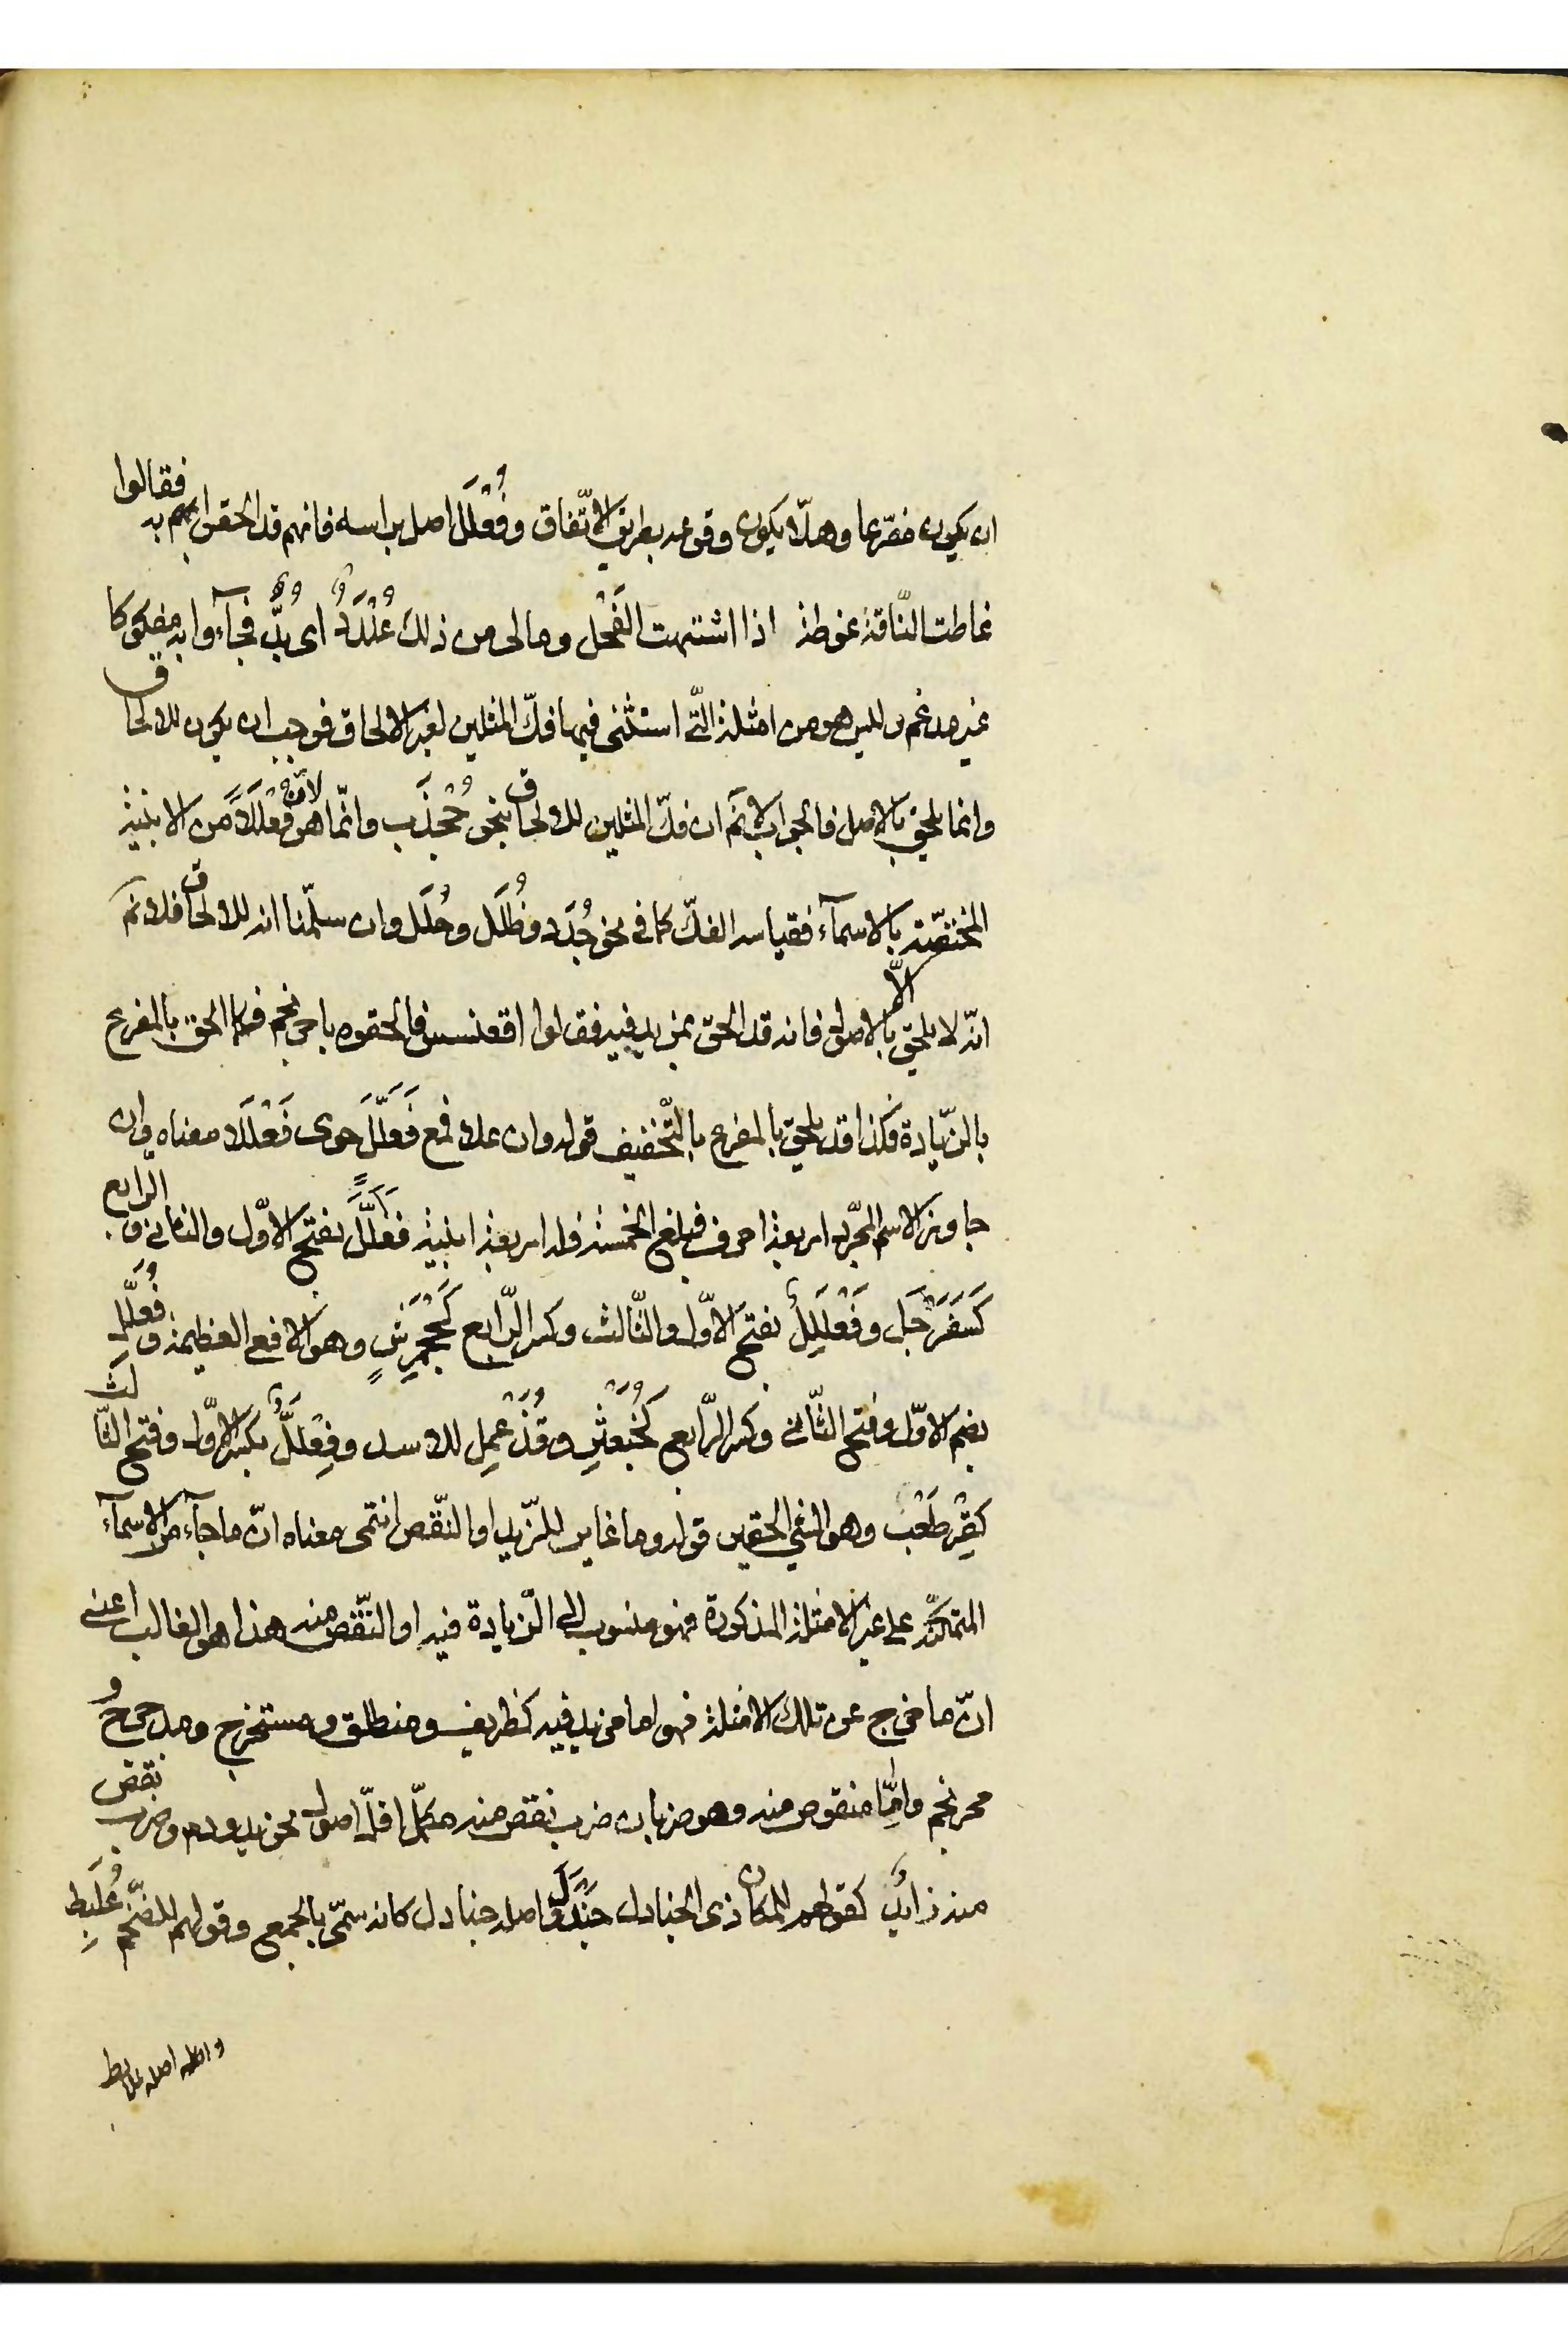 ان يكون مفرّعا وهلّا يكون وقوعه بطريق الاتّفاق وفُعْلَل اصل براسه فانهم قد الحقوا بهم به فقالوا
غاطت النّاقة غوطة اذا اشتهت الفَحْل وما لى من ذلك عُنْدَدٌ اى بُدٌّ فجآءوا به مفكوكا
غير مدغم وليس هو من امثلة الّتى استثنى فيها فكّ المثلين لغير الالحاق فوجب ان يكون للالحاق
وانما يلحق بالاصل فالجواب لا نم ان فكّ المثلين للالحاق بنحو جُحْدَب وانّما هو لانّ فُعْلَلًا من الابنية
المختصّة بالاسمآء فقياسه الفكّ كما فى نحو جُدَد وظُلَل وحُلَل وان سلّمنا انه للالحاق فلا نم
انّه لا يلحق الّا بالاصول فانه قد الحق بمزيد فيه فقالوا اقعنسس فالحقوه باحرنجم فكما الحق بالمفرع
بالزّيادة فكذا قد يلحق بالمفرع بالتّخفيف قوله وان علا فمع فَعَلَّلٍ حوى فَعْلَلِلا معناه فان
جاوز الاسم المجّرد اربعة احرف فبلغ الخمسة فله اربعة ابنية فَعَلَّلٌ بفتح الاوّل والثانى والرابع
كَسَفَرْجَل وفَعْلَلِلٌ بفتح الاوّل والثّالث وكسر الرّابع كَجَحْمَرِشٍ وهو الافعى العظيمة وفُعَلِّل
بضم الاوّل وفتح الثّانى وكسر الرّابع كَخُبَعْثِنٍ وقُذَعْمِل للاسد وفِعْلَلٌّ بكسر الاوّل وفتح الثّالث
كقِرْطَعْب وهو الشئ الحقير قوله وما غاير للزّيد او النّقص انتمى معناه انّ ما جآء من الاسمآء
المتمكّنة على غير الامثلة المذكورة فهو منسوب الى الزّيادة فيه او النّقص منه هذا هو الغالب اعنى
انّ ما خرج عن تلك الامثلة فهو اما مزيد فيه كظريف ومنطلق ومستخرج ومدحرج و
محرنجم وامّا منقوص منه وهو ضربان ضرب نقص منه مكمّل اقلّ اصول نحو يد ودم وضرب نقص
منه زائد كقولهم للمكان ذى الجنادل جَنَدِل واصله جنادل كانه سمّى بالجمع وقولهم للضّخم عُلَبِط
واصله علابط